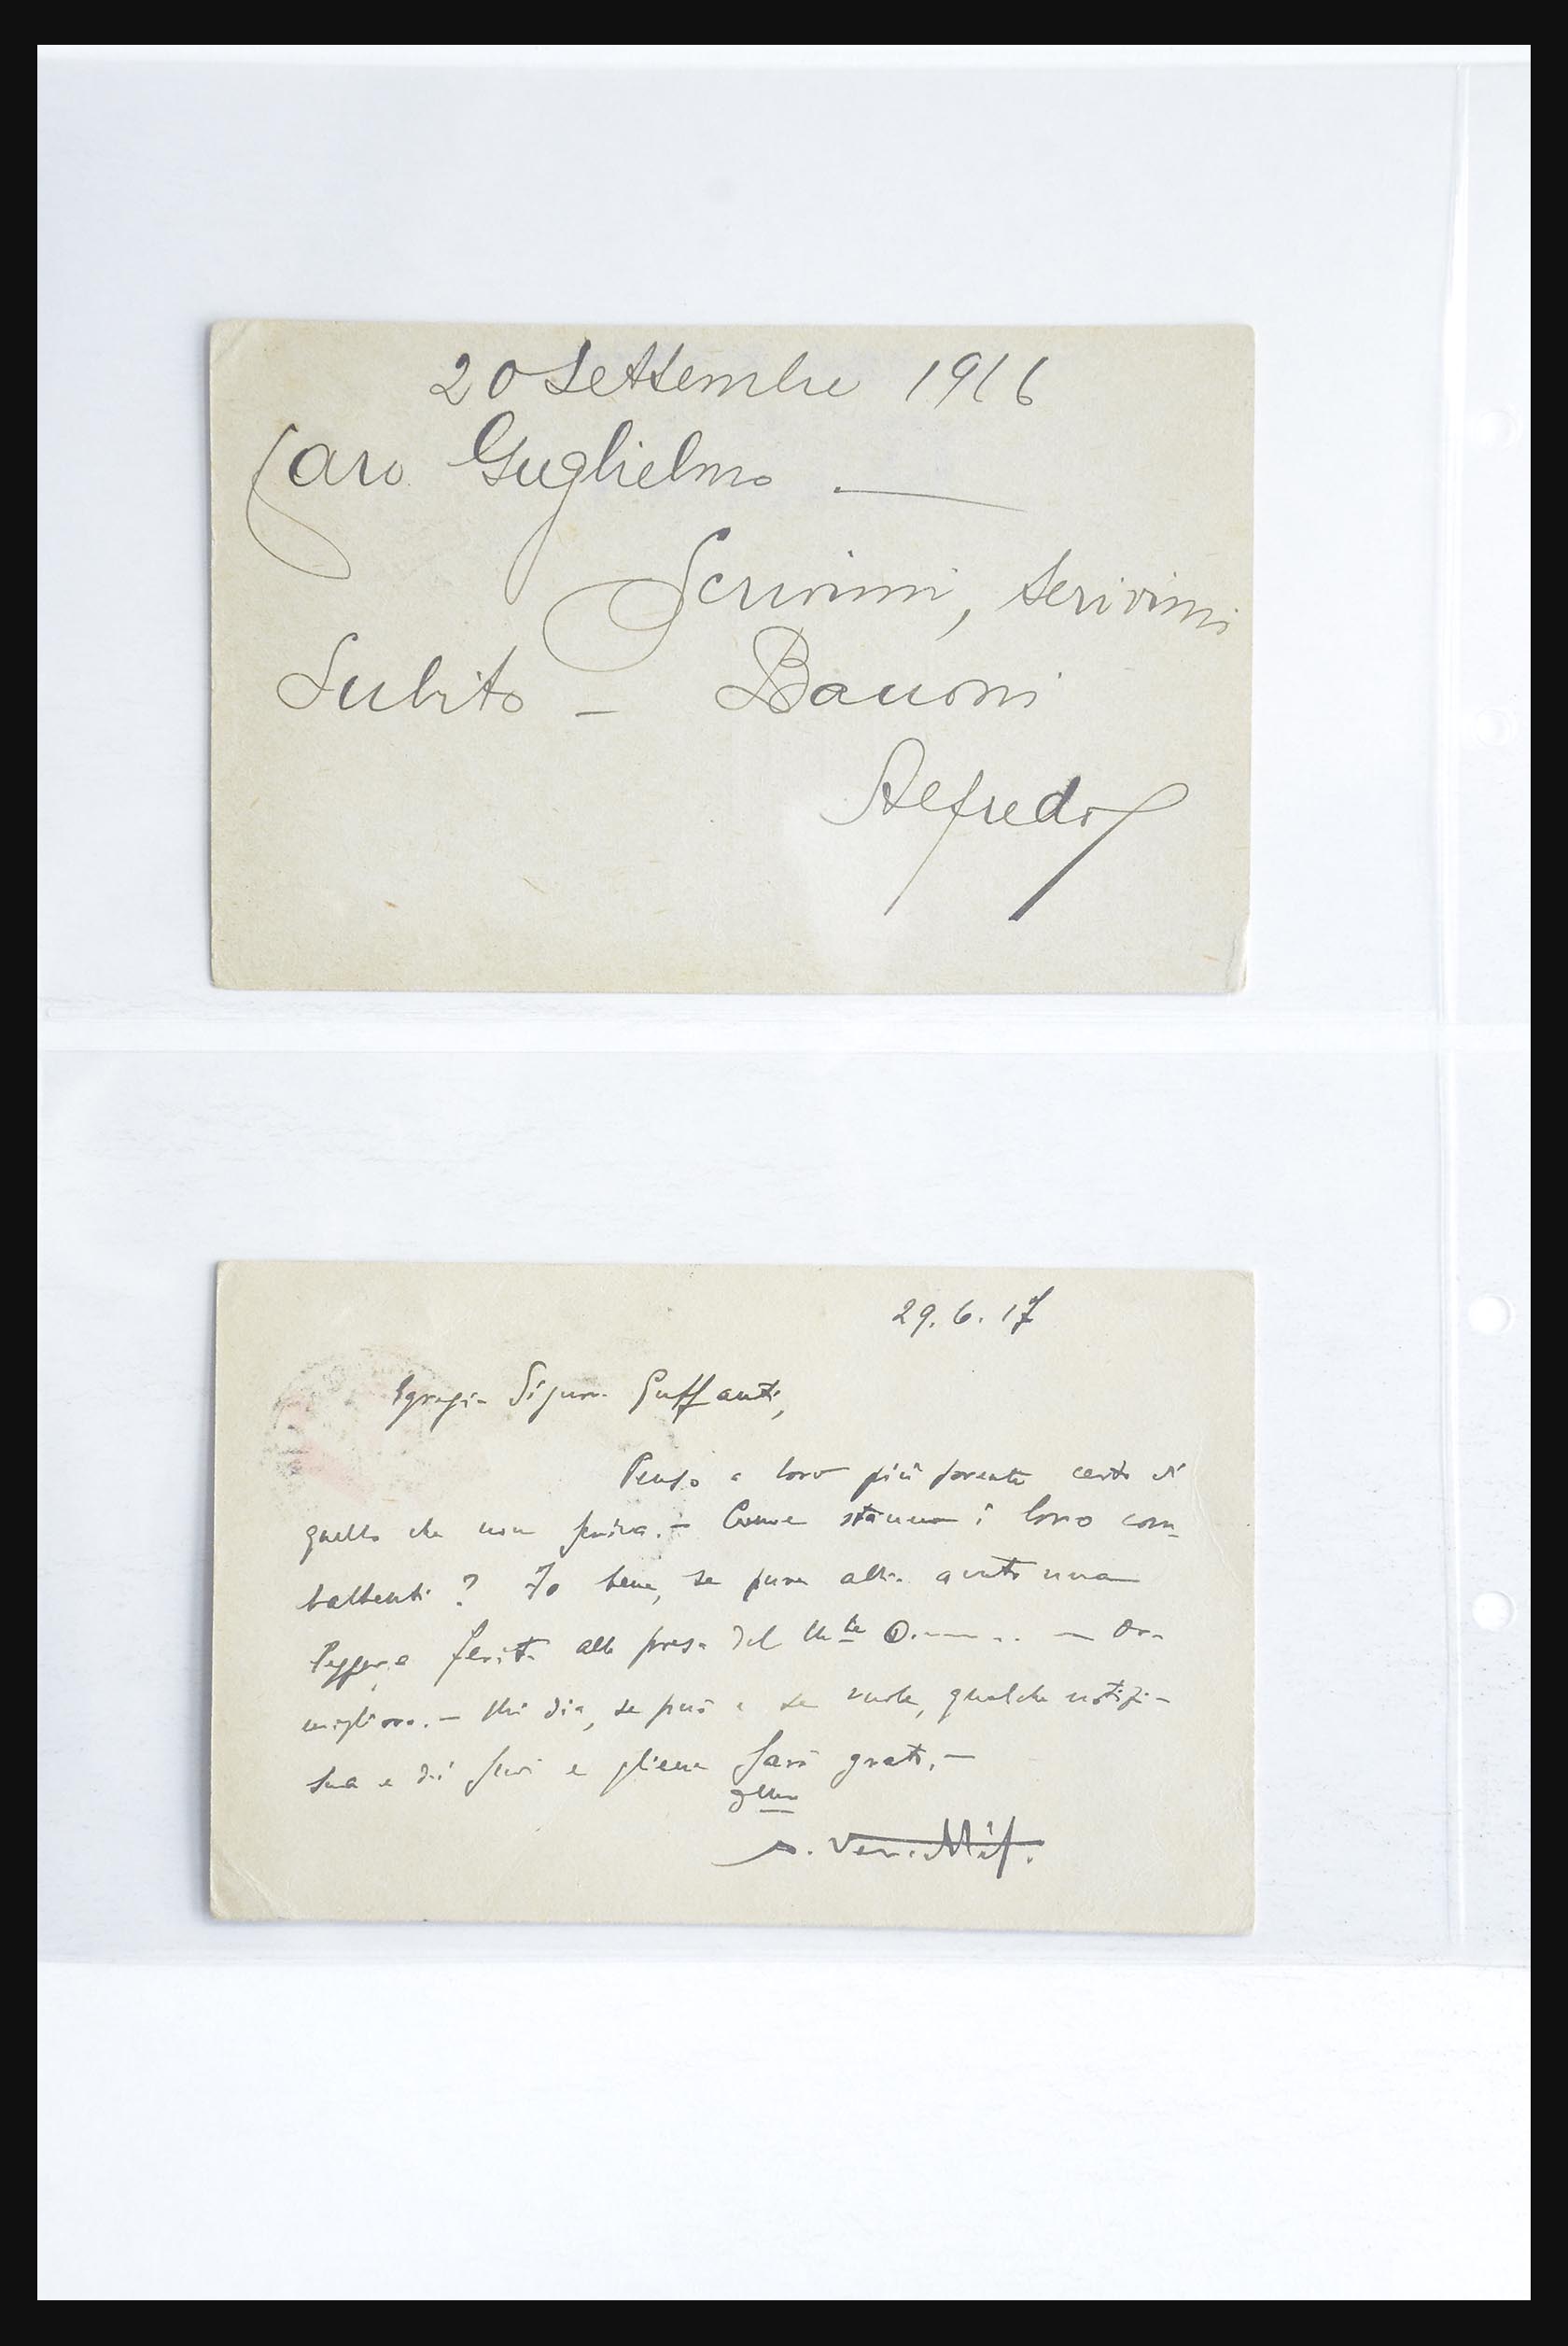 20 Settembre 1916
Caro Guglielmo —
Scrivimi, scrivimi
Subito — Bacioni
Alfredo
29.6.17
Egregio Signor Guffanti,
Penso a loro più sovente certo di
quello che non scriva. — Come stanno i loro com-
battenti? Io bene, se pure abbia avuto una
leggera ferita alla presa del M.te O. — Ora
miglioro. — Mi dia, se può e se vuole, qualche notizia
sua e dei suoi e gliene sarò grato. —